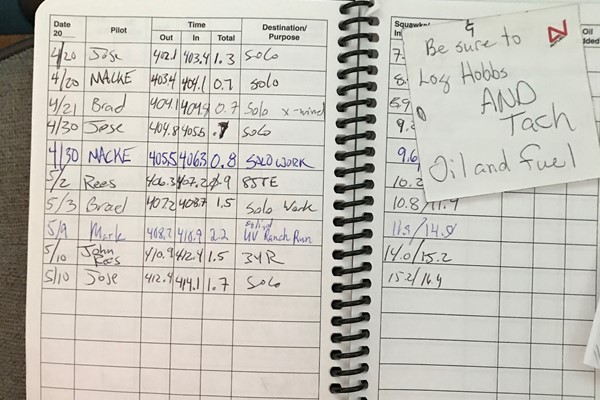 Date 20__ Pilot Time Destination/ Purpose
Out In Total
4/20 Jose 402.1 403.4 1.3 Solo
4/20 MACKE 403.4 404.1 0.7 Solo
4/21 Brad 404.1 404.9 0.7 Solo x-wind
4/30 Jose 404.8 405.5 .7 Solo
4/30 MACKE 405.5 406.3 0.8 SOLO WORK
5/2 Rees 406.3 407.2 0.9 85TE
5/3 Brad 407.2 408.7 1.5 Solo Work
5/9 Mark 408.7 410.9 2.2 UV Ranch Run
5/10 John Rees 410.9 412.4 1.5 34R
5/10 Jose 412.4 414.1 1.7 Solo
In
7.
8.
9.
9.6
10.2
10.8/11.9
11.9/14.0
14.0/15.2
15.2/16.4
Oil
dded
Be sure to
Log Hobbs
AND
Tach
Oil and fuel